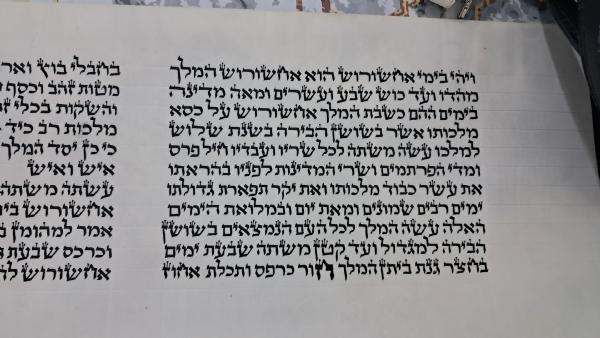 ויהי בימי אחשורוש הוא אחשורוש המלך
מהדו ועד כוש שבע ועשרים ומאה מדינה
בימים ההם כשבת המלך אחשורוש על כסא
מלכותו אשר בשושן הבירה בשנת שלוש
למלכו עשה משתה לכל שריו ועבדיו חיל פרס
ומדי הפרתמים ושרי המדינות לפניו בהראתו
את עשר כבוד מלכותו ואת יקר תפארת גדולתו
ימים רבים שמונים ומאת יום ובמלואת הימים
האלה עשה המלך לכל העם הנמצאים בשושן
הבירה למגדול ועד קטן משתה שבעת ימים
בחצר גנת ביתן המלך חור כרפס ותכלת אחוז
בחבלי בוץ ואר
מטות זהב וכסף
והשקות בכלי
מלכות רב כיד
כי כן יסד המלך
איש ואיש
עשתה משתה
אחשורוש בי
אמר למהומן
וכרכס שבעת
אחשורוש לה